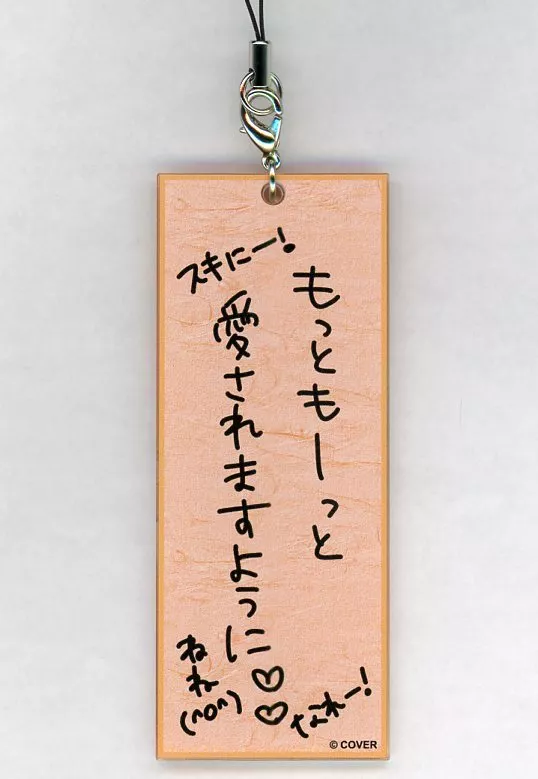 もっともーっと
愛されますように♡♡
スキにー!
なれー!
ねね(^o^)
© COVER